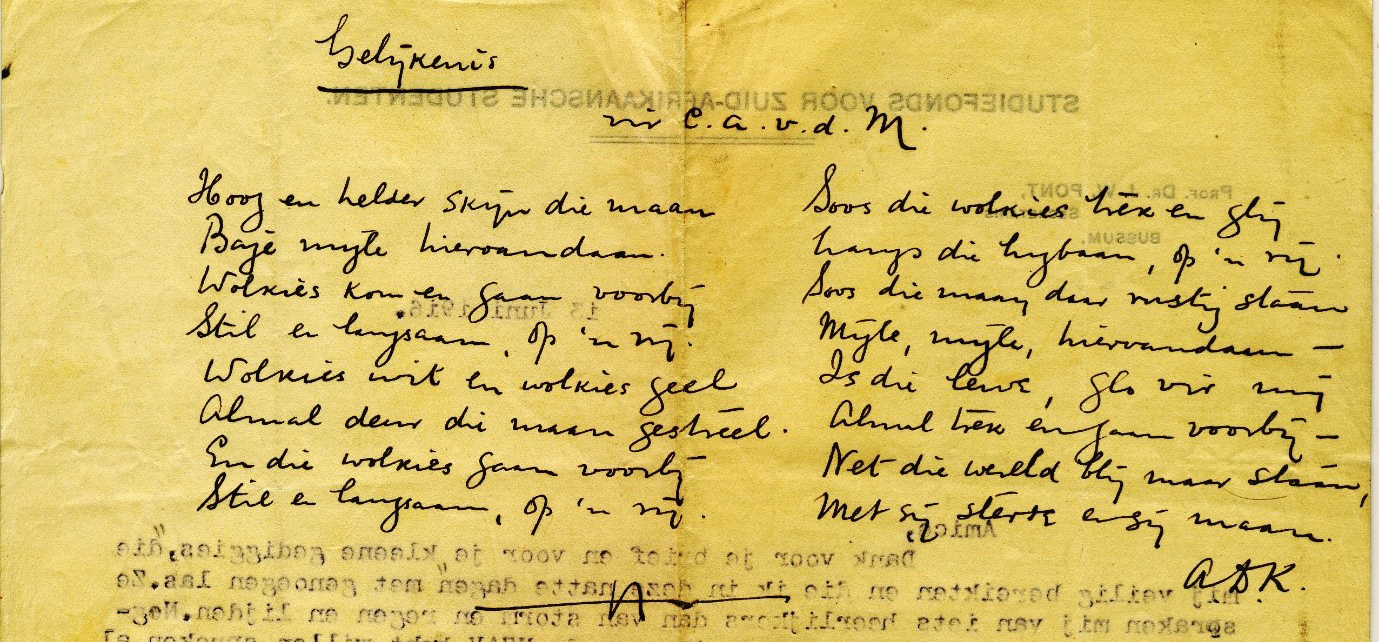 Gelijkenis
STUDIEFONDS VOOR ZUID-AFRIKAANSCHE STUDENTEN.
vir C. a. v. d. M.
PROF. DR. J. W. PONT,
BUSSUM.
13 Juni 1916.
Hoog en helder skijn die maan
Baje mijle hiervandaan.
Wolkies kom en gaan voorbij
Stil en langsaam, op 'n rij.
Wolkies wit en wolkies geel
Almal deur die maan gestreel.
En die wolkies gaan voorbij
Stil en langsaam, op 'n rij.
Soos die wolkies trek en glij
Langs die lugbaan, op 'n rij.
Soos die maan daar rustig staan
Mijle, mijle, hiervandaan —
Is die lewe, glo vir mij
Almal trek en gaan voorbij —
Net die wereld blij maar staan,
Met sij sterre en sij maan.
A D K.
Amice,
Dank voor je brief en voor je kleene gediggies,"die
mij veilig bereikten en die ik in deze natte dagen" met genoegen las.Ze
spraken mij van iets heerlijkers dan van storm en regen en lijden.Nog-